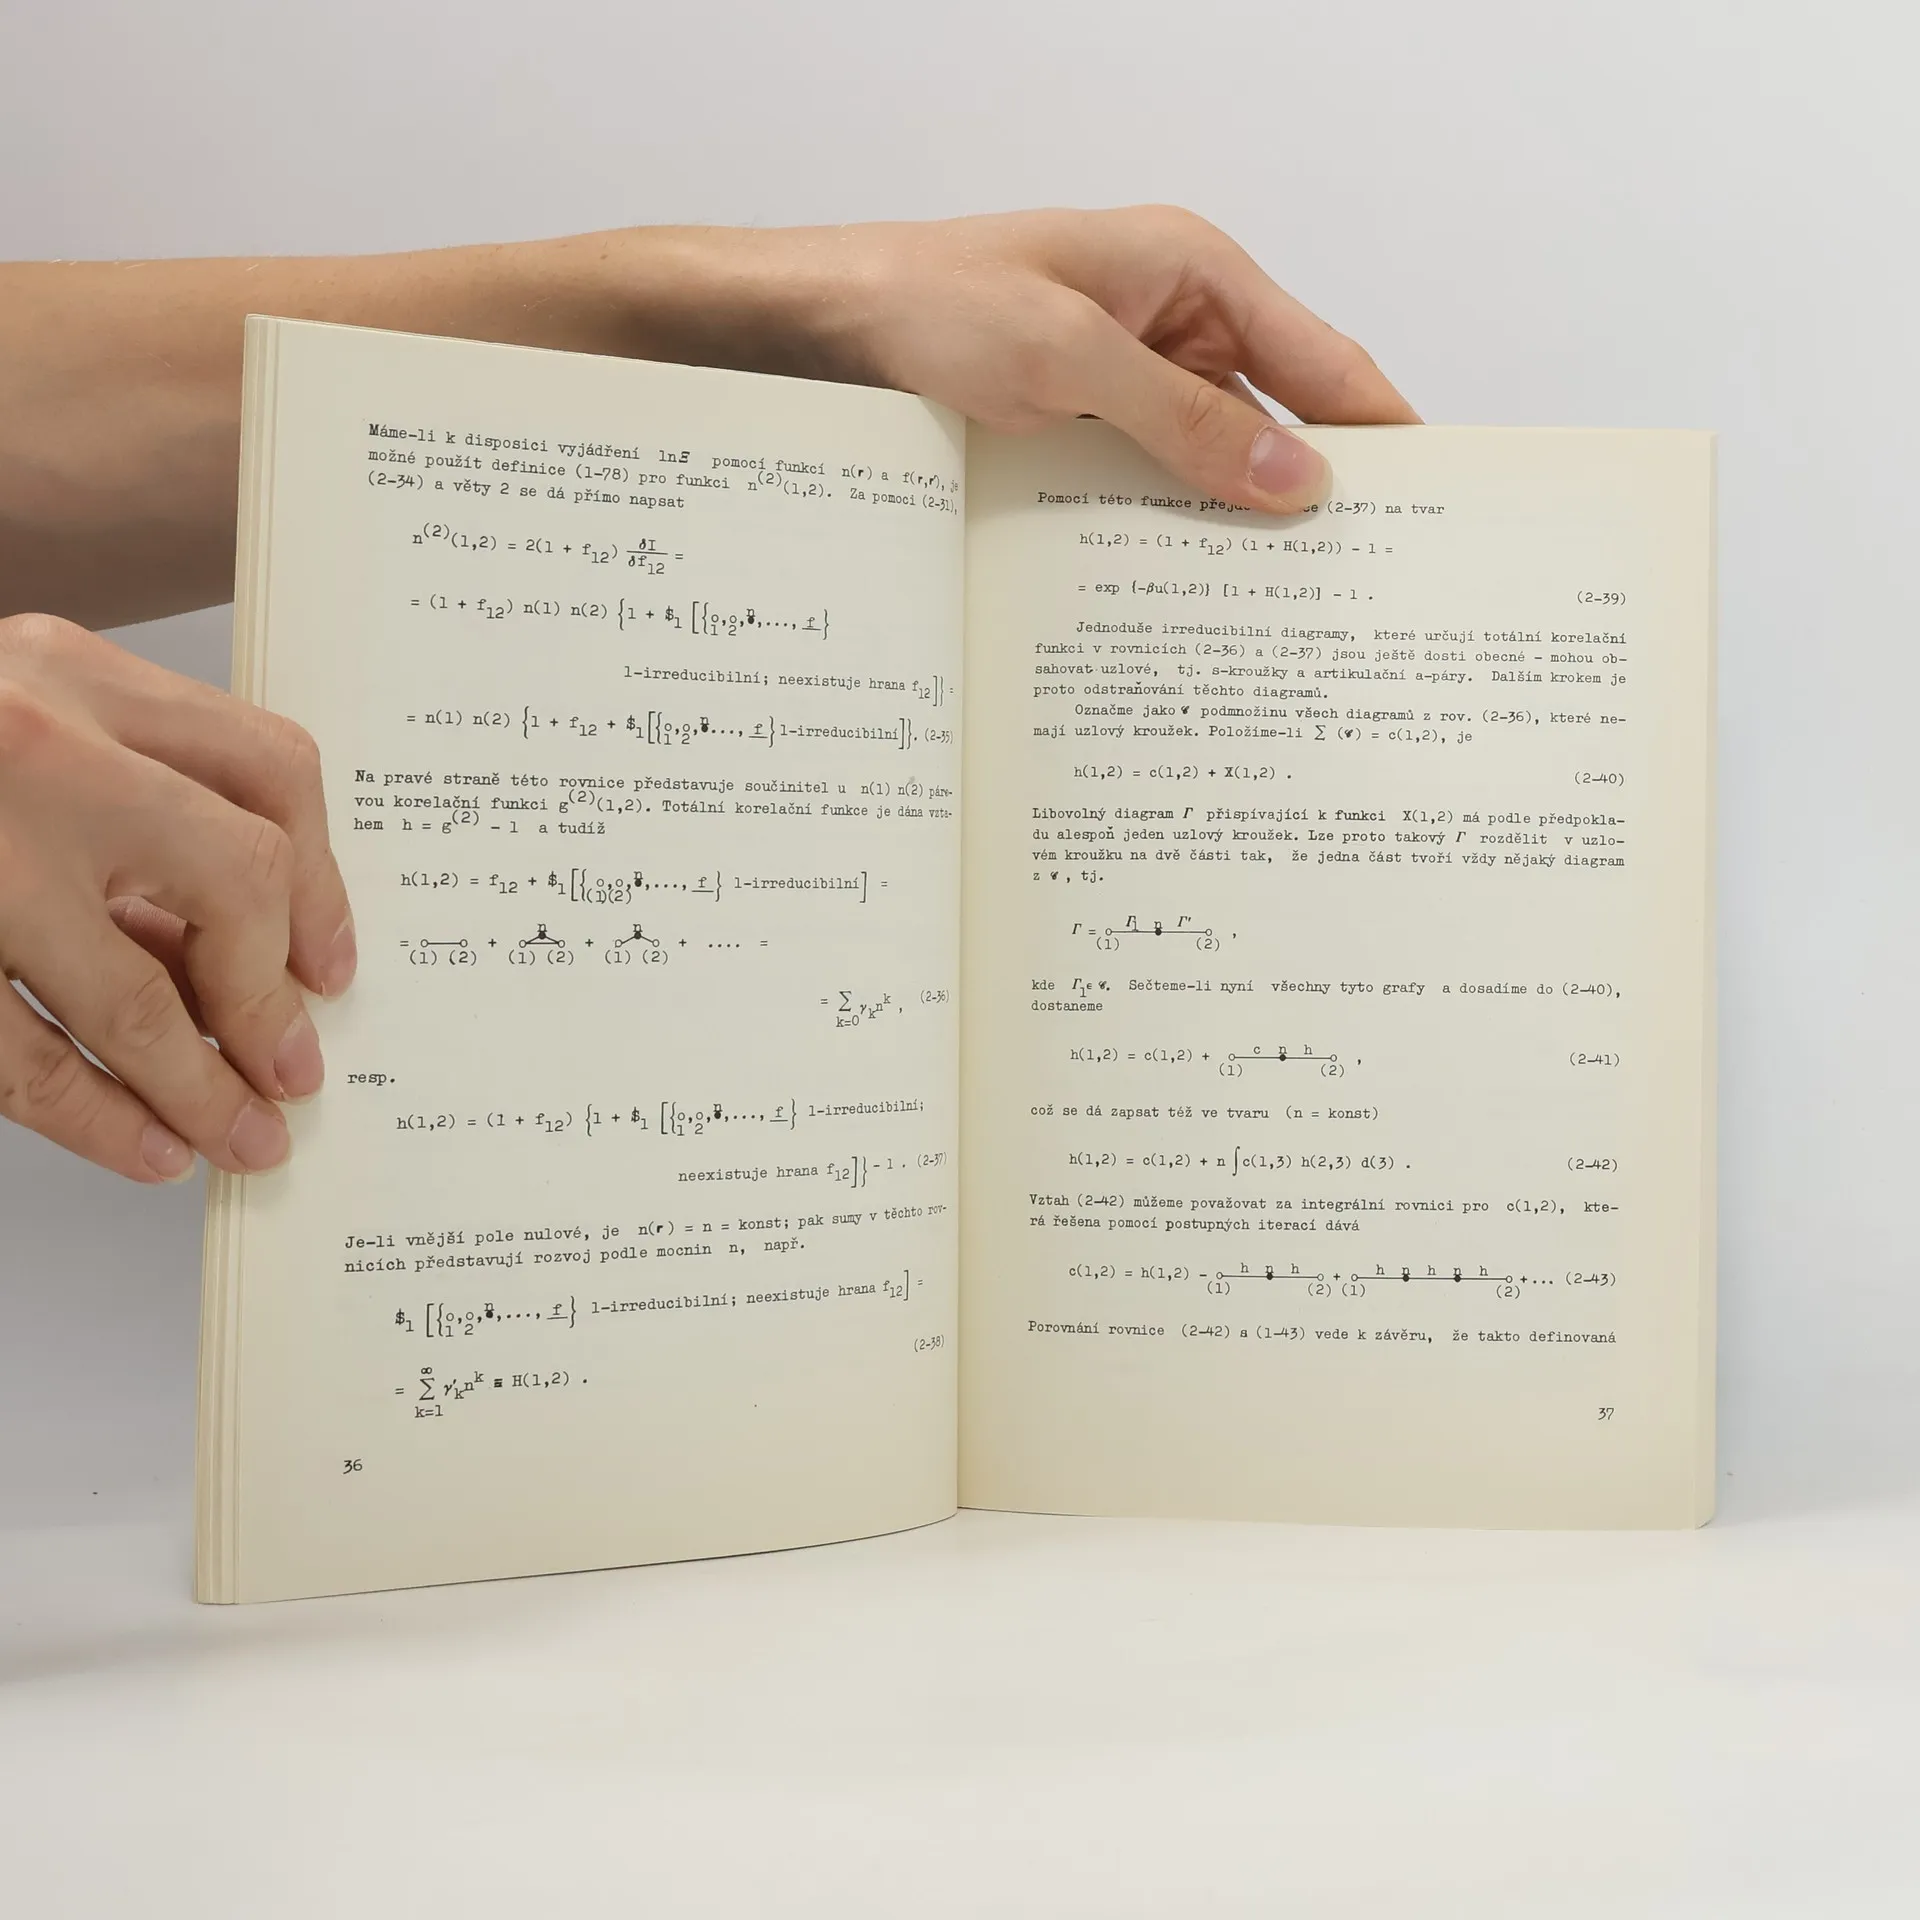 Máme-li k disposici vyjádření lnΞ pomocí funkcí n(r) a f(r,r'), je
možné použít definice (1-78) pro funkci n^(2)(1,2). Za pomoci (2-31),
(2-34) a věty 2 se dá přímo napsat
n^(2)(1,2) = 2(1 + f12) δI/δf12 =
= (1 + f12) n(1) n(2) {1 + $1 [{o1,o2,n●,..., f}
l-irreducibilní; neexistuje hrana f12]} =
= n(1) n(2) {1 + f12 + $1[{o1,o2,n●..., f} l-irreducibilní]}. (2-35)
Na pravé straně této rovnice představuje součinitel u n(1) n(2) páro-
vou korelační funkci g^(2)(1,2). Totální korelační funkce je dána vzta-
hem h = g^(2) - 1 a tudíž
h(1,2) = f12 + $1[{o(1),o(2),n●,..., f} l-irreducibilní] =
= (1) (2) + n (1) (2) + n (1) (2) + .... =
= ∑k=0 γk n^k , (2-36)
resp.
h(1,2) = (1 + f12) {1 + $1 [{o1,o2,n●,..., f} l-irreducibilní;
neexistuje hrana f12]} - 1 . (2-37)
Je-li vnější pole nulové, je n(r) = n = konst; pak sumy v těchto rov-
nicích představují rozvoj podle mocnin n, např.
$1 [{o1,o2,n●,..., f} l-irreducibilní; neexistuje hrana f12] =
(2-38)
= ∑k=1^∞ γ'k n^k ≡ H(1,2) .
36
Pomocí této funkce (2-37) na tvar
h(1,2) = (1 + f12) (1 + H(1,2)) - 1 =
= exp {-βu(1,2)} [1 + H(1,2)] - 1 . (2-39)
Jednoduše irreducibilní diagramy, které určují totální korelační
funkci v rovnicích (2-36) a (2-37) jsou ještě dosti obecné - mohou ob-
sahovat uzlové, tj. s-kroužky a artikulační a-páry. Dalším krokem je
proto odstraňování těchto diagramů.
Označme jako 𝒞 podmnožinu všech diagramů z rov. (2-36), které ne-
mají uzlový kroužek. Položíme-li ∑ (𝒞) = c(1,2), je
h(1,2) = c(1,2) + X(1,2) . (2-40)
Libovolný diagram Γ přispívající k funkci X(1,2) má podle předpokla-
du alespoň jeden uzlový kroužek. Lze proto takový Γ rozdělit v uzlo-
vém kroužku na dvě části tak, že jedna část tvoří vždy nějaký diagram
z 𝒞 , tj.
Γ = (1) Γ1 n Γ' (2) ,
kde Γ1 ϵ 𝒞. Sečteme-li nyní všechny tyto grafy a dosadíme do (2-40),
dostaneme
h(1,2) = c(1,2) + (1) c n h (2) , (2-41)
což se dá zapsat též ve tvaru (n = konst)
h(1,2) = c(1,2) + n ∫c(1,3) h(2,3) d(3) . (2-42)
Vztah (2-42) můžeme považovat za integrální rovnici pro c(1,2), kte-
rá řešena pomocí postupných iterací dává
c(1,2) = h(1,2) - (1) h n h (2) + (1) h n h n h (2) +... (2-43)
Porovnání rovnice (2-42) a (1-43) vede k závěru, že takto definovaná
37